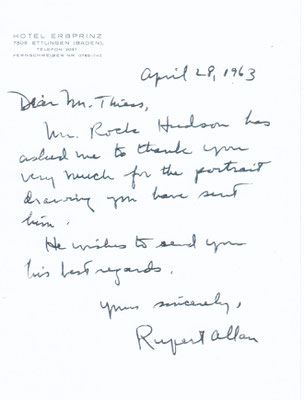 HOTEL ERBPRINZ
7505 ETTLINGEN (BADEN),
TELEFON
FERNSCHREIBER NR
April 28, 1963
Dear Mr. Thiess,
Mr. Rock Hudson has
asked me to thank you
very much for the portrait
drawing you have sent
him.
He wishes to send you
his best regards.
Yours sincerely,
Rupert Allan